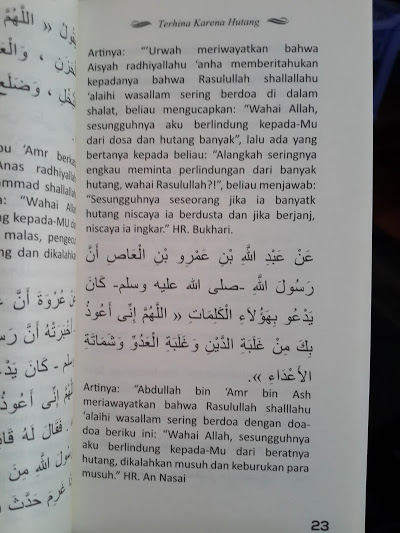 Terhina Karena Hutang
Artinya: "'Urwah meriwayatkan bahwa
Aisyah radhiyallahu 'anha memberitahukan
kepadanya bahwa Rasulullah shallallahu
'alaihi wasallam sering berdoa di dalam
shalat, beliau mengucapkan: "Wahai Allah,
sesungguhnya aku berlindung kepada-Mu
dari dosa dan hutang banyak", lalu ada yang
bertanya kepada beliau: "Alangkah seringnya
engkau meminta perlindungan dari banyak
hutang, wahai Rasulullah?!", beliau menjawab:
"Sesungguhnya seseorang jika ia banyatk
hutang niscaya ia berdusta dan jika berjanj,
niscaya ia ingkar." HR. Bukhari.
عَنْ عَبْدِ اللَّهِ بْنِ عَمْرِو بْنِ الْعَاصِ أَنَّ
رَسُولَ اللَّهِ -صلى الله عليه وسلم- كَانَ
يَدْعُو بِهَؤُلَاءِ الْكَلِمَاتِ « اللَّهُمَّ إِنِّى أَعُوذُ
بِكَ مِنْ غَلَبَةِ الدَّيْنِ وَغَلَبَةِ الْعَدُوِّ وَشَمَاتَةِ
الأَعْدَاءِ ».
Artinya: "Abdullah bin 'Amr bin Ash
meriawayatkan bahwa Rasulullah shalllahu
'alaihi wasallam sering berdoa dengan doa-
doa beriku ini: "Wahai Allah, sesungguhnya
aku berlindung kepada-Mu dari beratnya
hutang, dikalahkan musuh dan keburukan para
musuh." HR. An Nasai
23